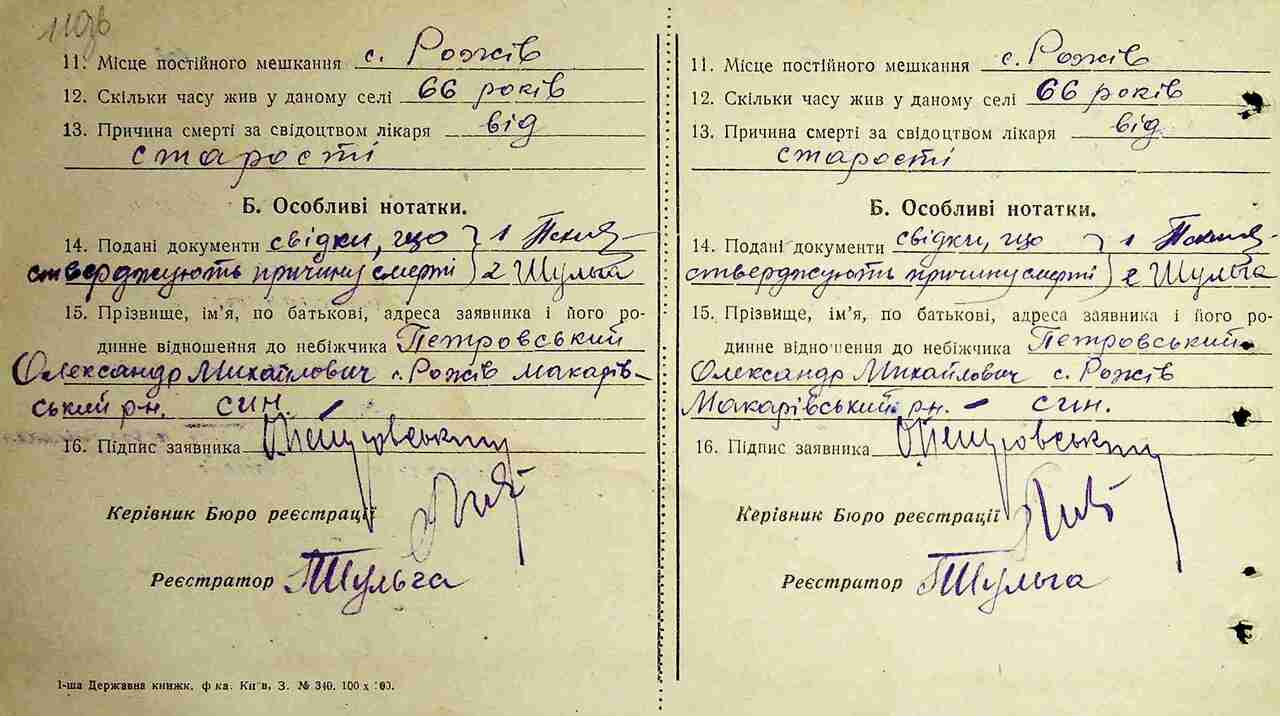 11. Місце постійного мешкання с. Рожів
12. Скільки часу жив у даному селі 66 років
13. Причина смерті за свідоцтвом лікаря від
старості
Б. Особливі нотатки.
14. Подані документи свідки, що } 1
стверджують причину смерті } 2 Шульга
15. Прізвище, ім'я, по батькові, адреса заявника і його ро-
динне відношення до небіжчика Петровський
Олександр Михайлович с. Рожів Макарів-
ський р-н. син.
16. Підпис заявника О.Петровський
Керівник Бюро реєстрації
Реєстратор Шульга
1-ша Державна книжк. ф-ка. Київ, З. № 340. 100 х
11. Місце постійного мешкання с. Рожів
12. Скільки часу жив у даному селі 66 років
13. Причина смерті за свідоцтвом лікаря від
старості
Б. Особливі нотатки.
14. Подані документи свідки, що } 1
стверджують причину смерті } 2 Шульга
15. Прізвище, ім'я, по батькові, адреса заявника і його ро-
динне відношення до небіжчика Петровський
Олександр Михайлович с. Рожів
Макарівський р-н. – син.
16. Підпис заявника О.Петровський
Керівник Бюро реєстрації
Реєстратор Шульга